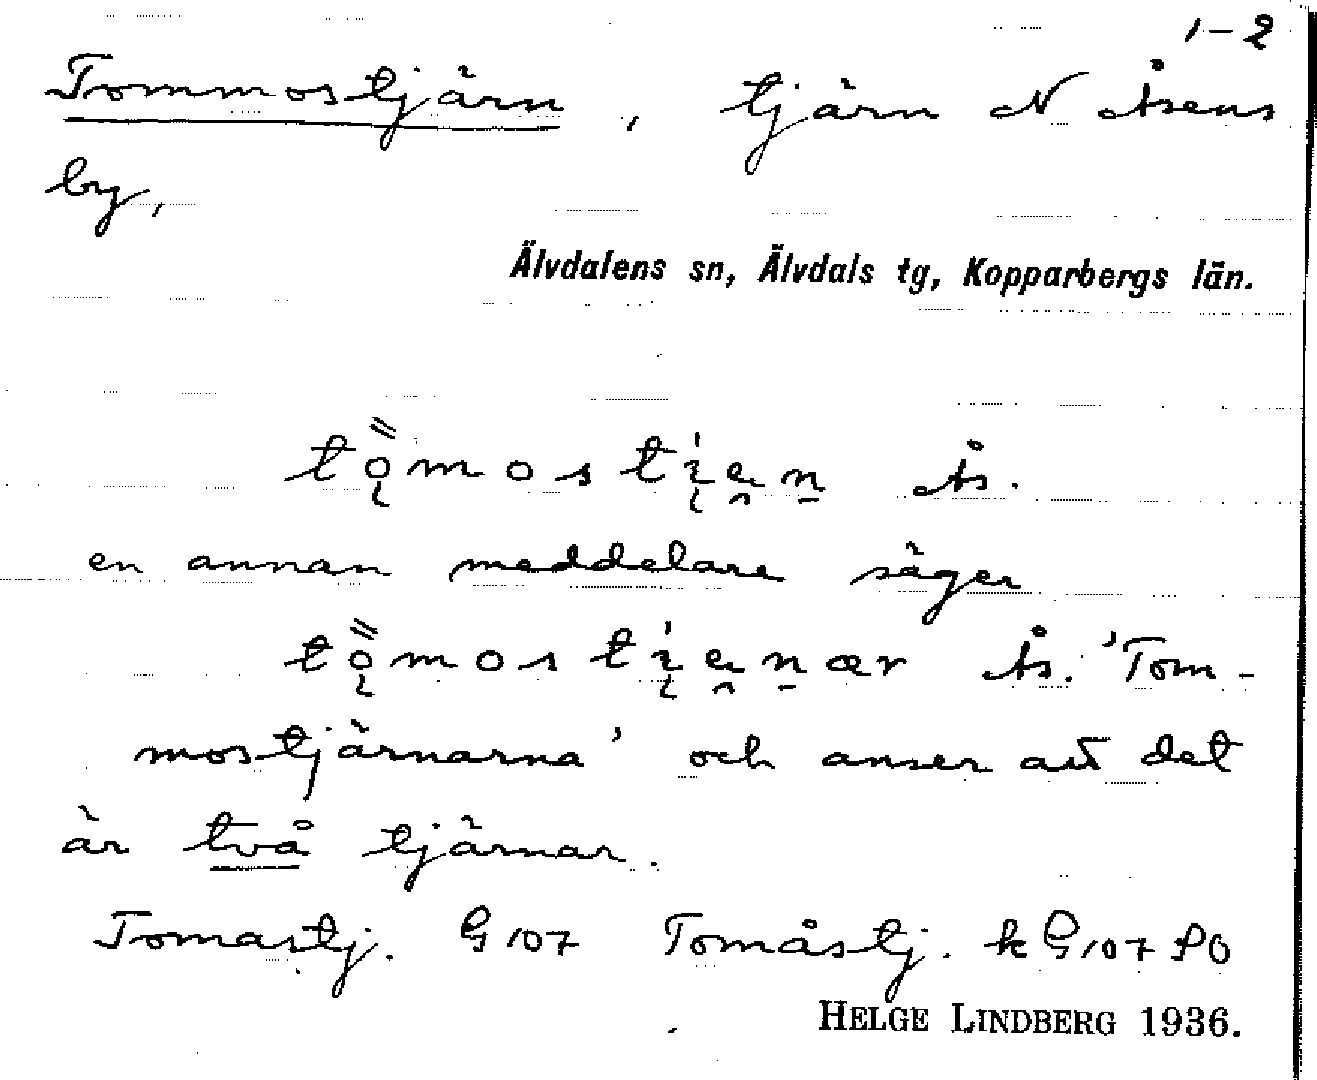 1-2
Tommostjärn, tjärn N Åsens
by,
Älvdalens sn, Älvdals tg, Kopparbergs län.
tǫ̈mostı̨en̠ Ås.
en annan meddelare säger
tǫ̈mostı̨en̠ær Ås. 'Tom-
mostjärnarna' och anser att det
är två tjärnar.
Tomastj. G 107 Tomåstj. k G 107 SO
HELGE LINDBERG 1936.